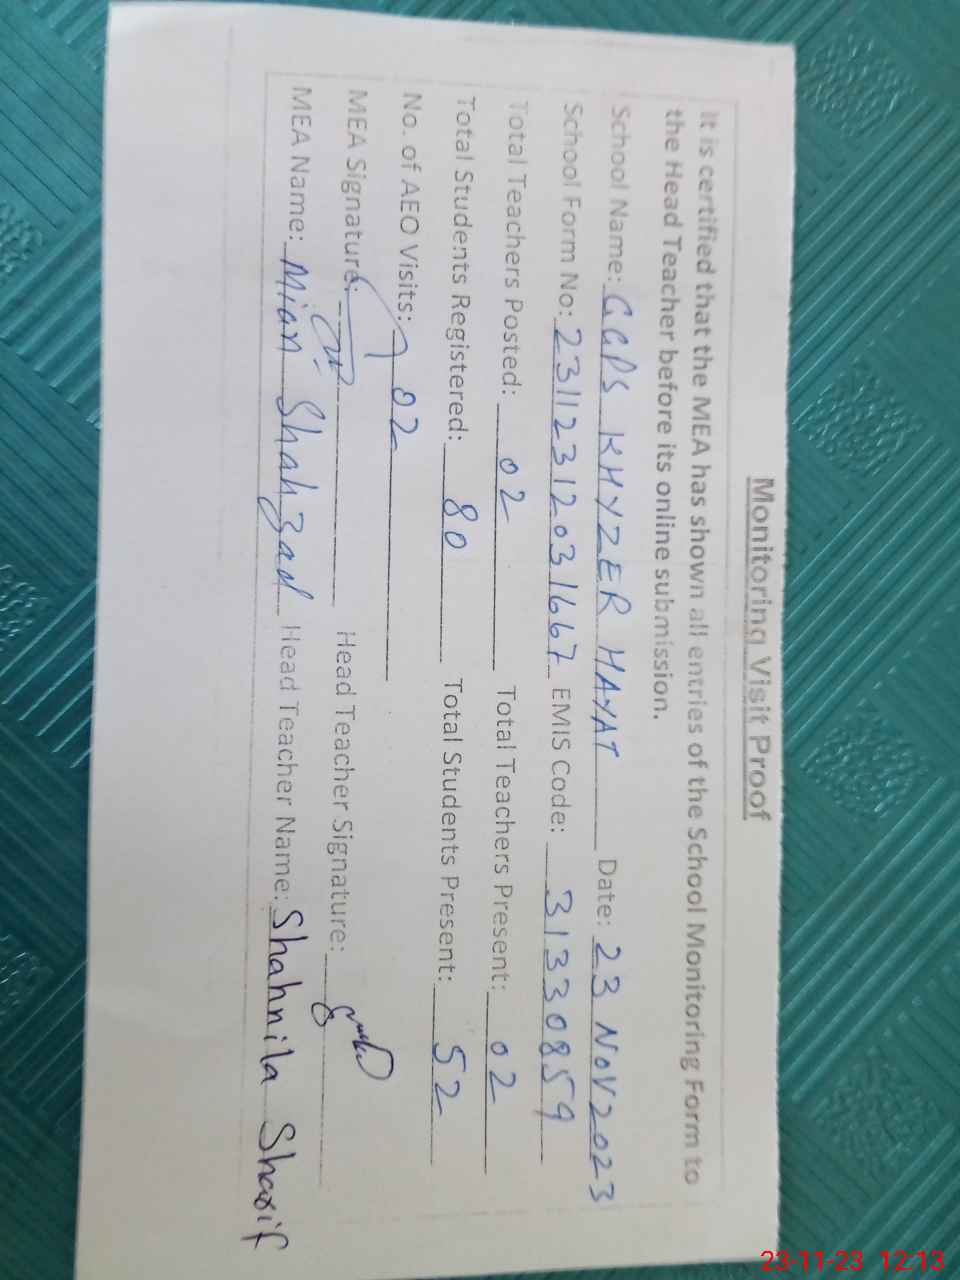 Monitoring Visit Proof
It is certified that the MEA has shown all entries of the School Monitoring Form to
the Head Teacher before its online submission.
School Name: GGPS KHYZER HAYAT Date: 23 NOV 2023
School Form No: 23112312031667 EMIS Code: 31330859
Total Teachers Posted: 02 Total Teachers Present: 02
Total Students Registered: 80 Total Students Present: 52
No. of AEO Visits: 02
MEA Signature: Head Teacher Signature:
MEA Name: Mian Shahzad Head Teacher Name: Shahnila Sharif
23-11-23 12:13